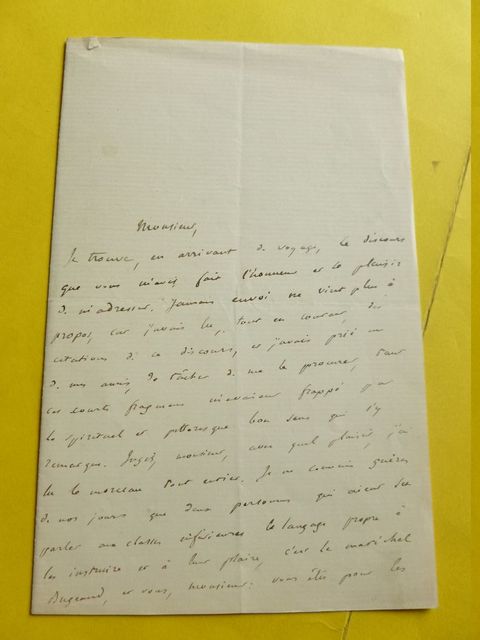 Monsieur,
Je trouve, en arrivant de voyage, le discours
que vous m'avez fait l'honneur et le plaisir
de m'adresser. Jamais envoi ne vint plus à
propos, car j'avais lu, tout en courant, des
citations de ce discours, et j'avais prié un
de mes amis, de tâcher de me le procurer, tant
ces courts fragmens m'avaient frappé par
le spirituel et pittoresque bon sens qui s'y
remarque. Jugez, monsieur, avec quel plaisir, j'ai
lu le morceau tout entier. Je ne connais guères
de nos jours que deux personnes qui aient su
parler aux classes inférieures le langage propre à
les instruire et à leur plaire, c'est le maréchal
Bugeaud, et vous, monsieur: vous êtes pour les